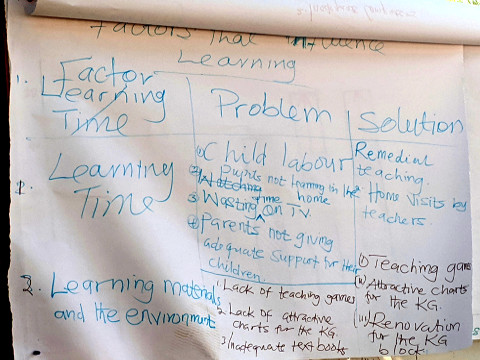 Factors That influence
Learning
1. Factor
Learning
Time
Problem
Solution
Learning
Time
(1) Child labour
Pupils not learning in the home
3 Wasting time on TV.
4 Parents not giving
adequate support for their
children.
Remedial
teaching.
Home visits by
teachers.
2. Learning materials
and the environment
1. Lack of teaching games
2. Lack of attractive
charts for the KG.
3) Inadequate text books
(i) Teaching games
(ii) Attractive charts
for the KG.
(iii) Renovation
for the KG
block